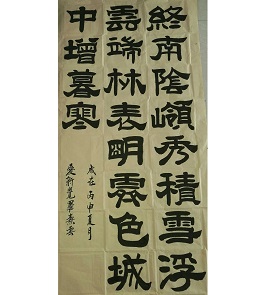 終南陰嶺秀積雪浮
雲端林表明霽色城
中增暮寒
歲在丙申夏月
愛新覺羅